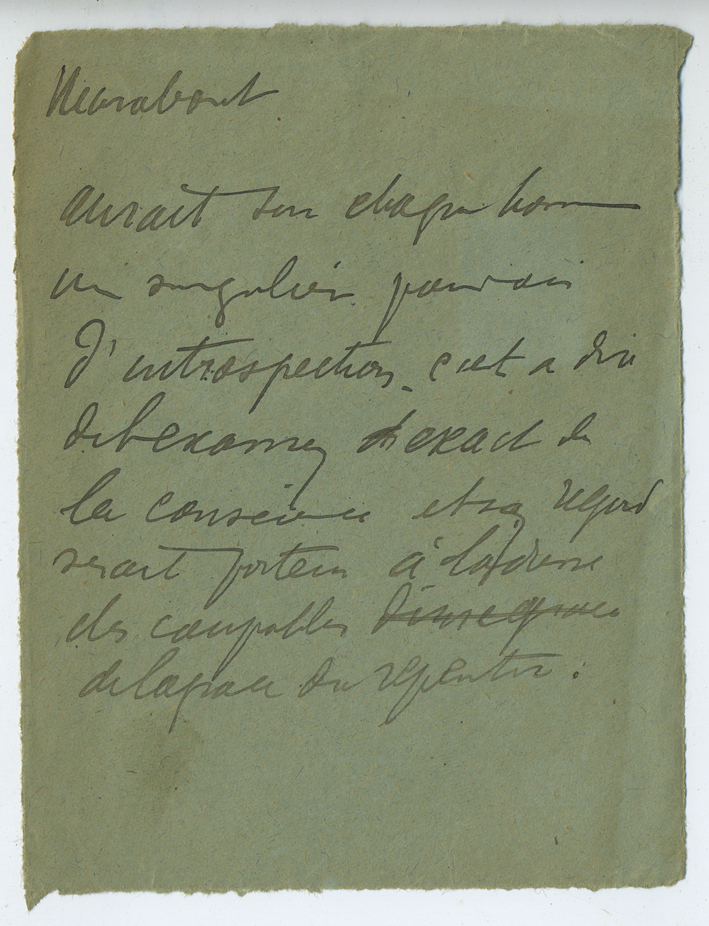 Marabout
aurait sur chaque homme
un singulier pouvoir
d'introspection c'est a dire
de l'examen exact de
la conscience et son regard
serait porteur à l'adresse
des coupables d'une grace
de la grace du repentir.